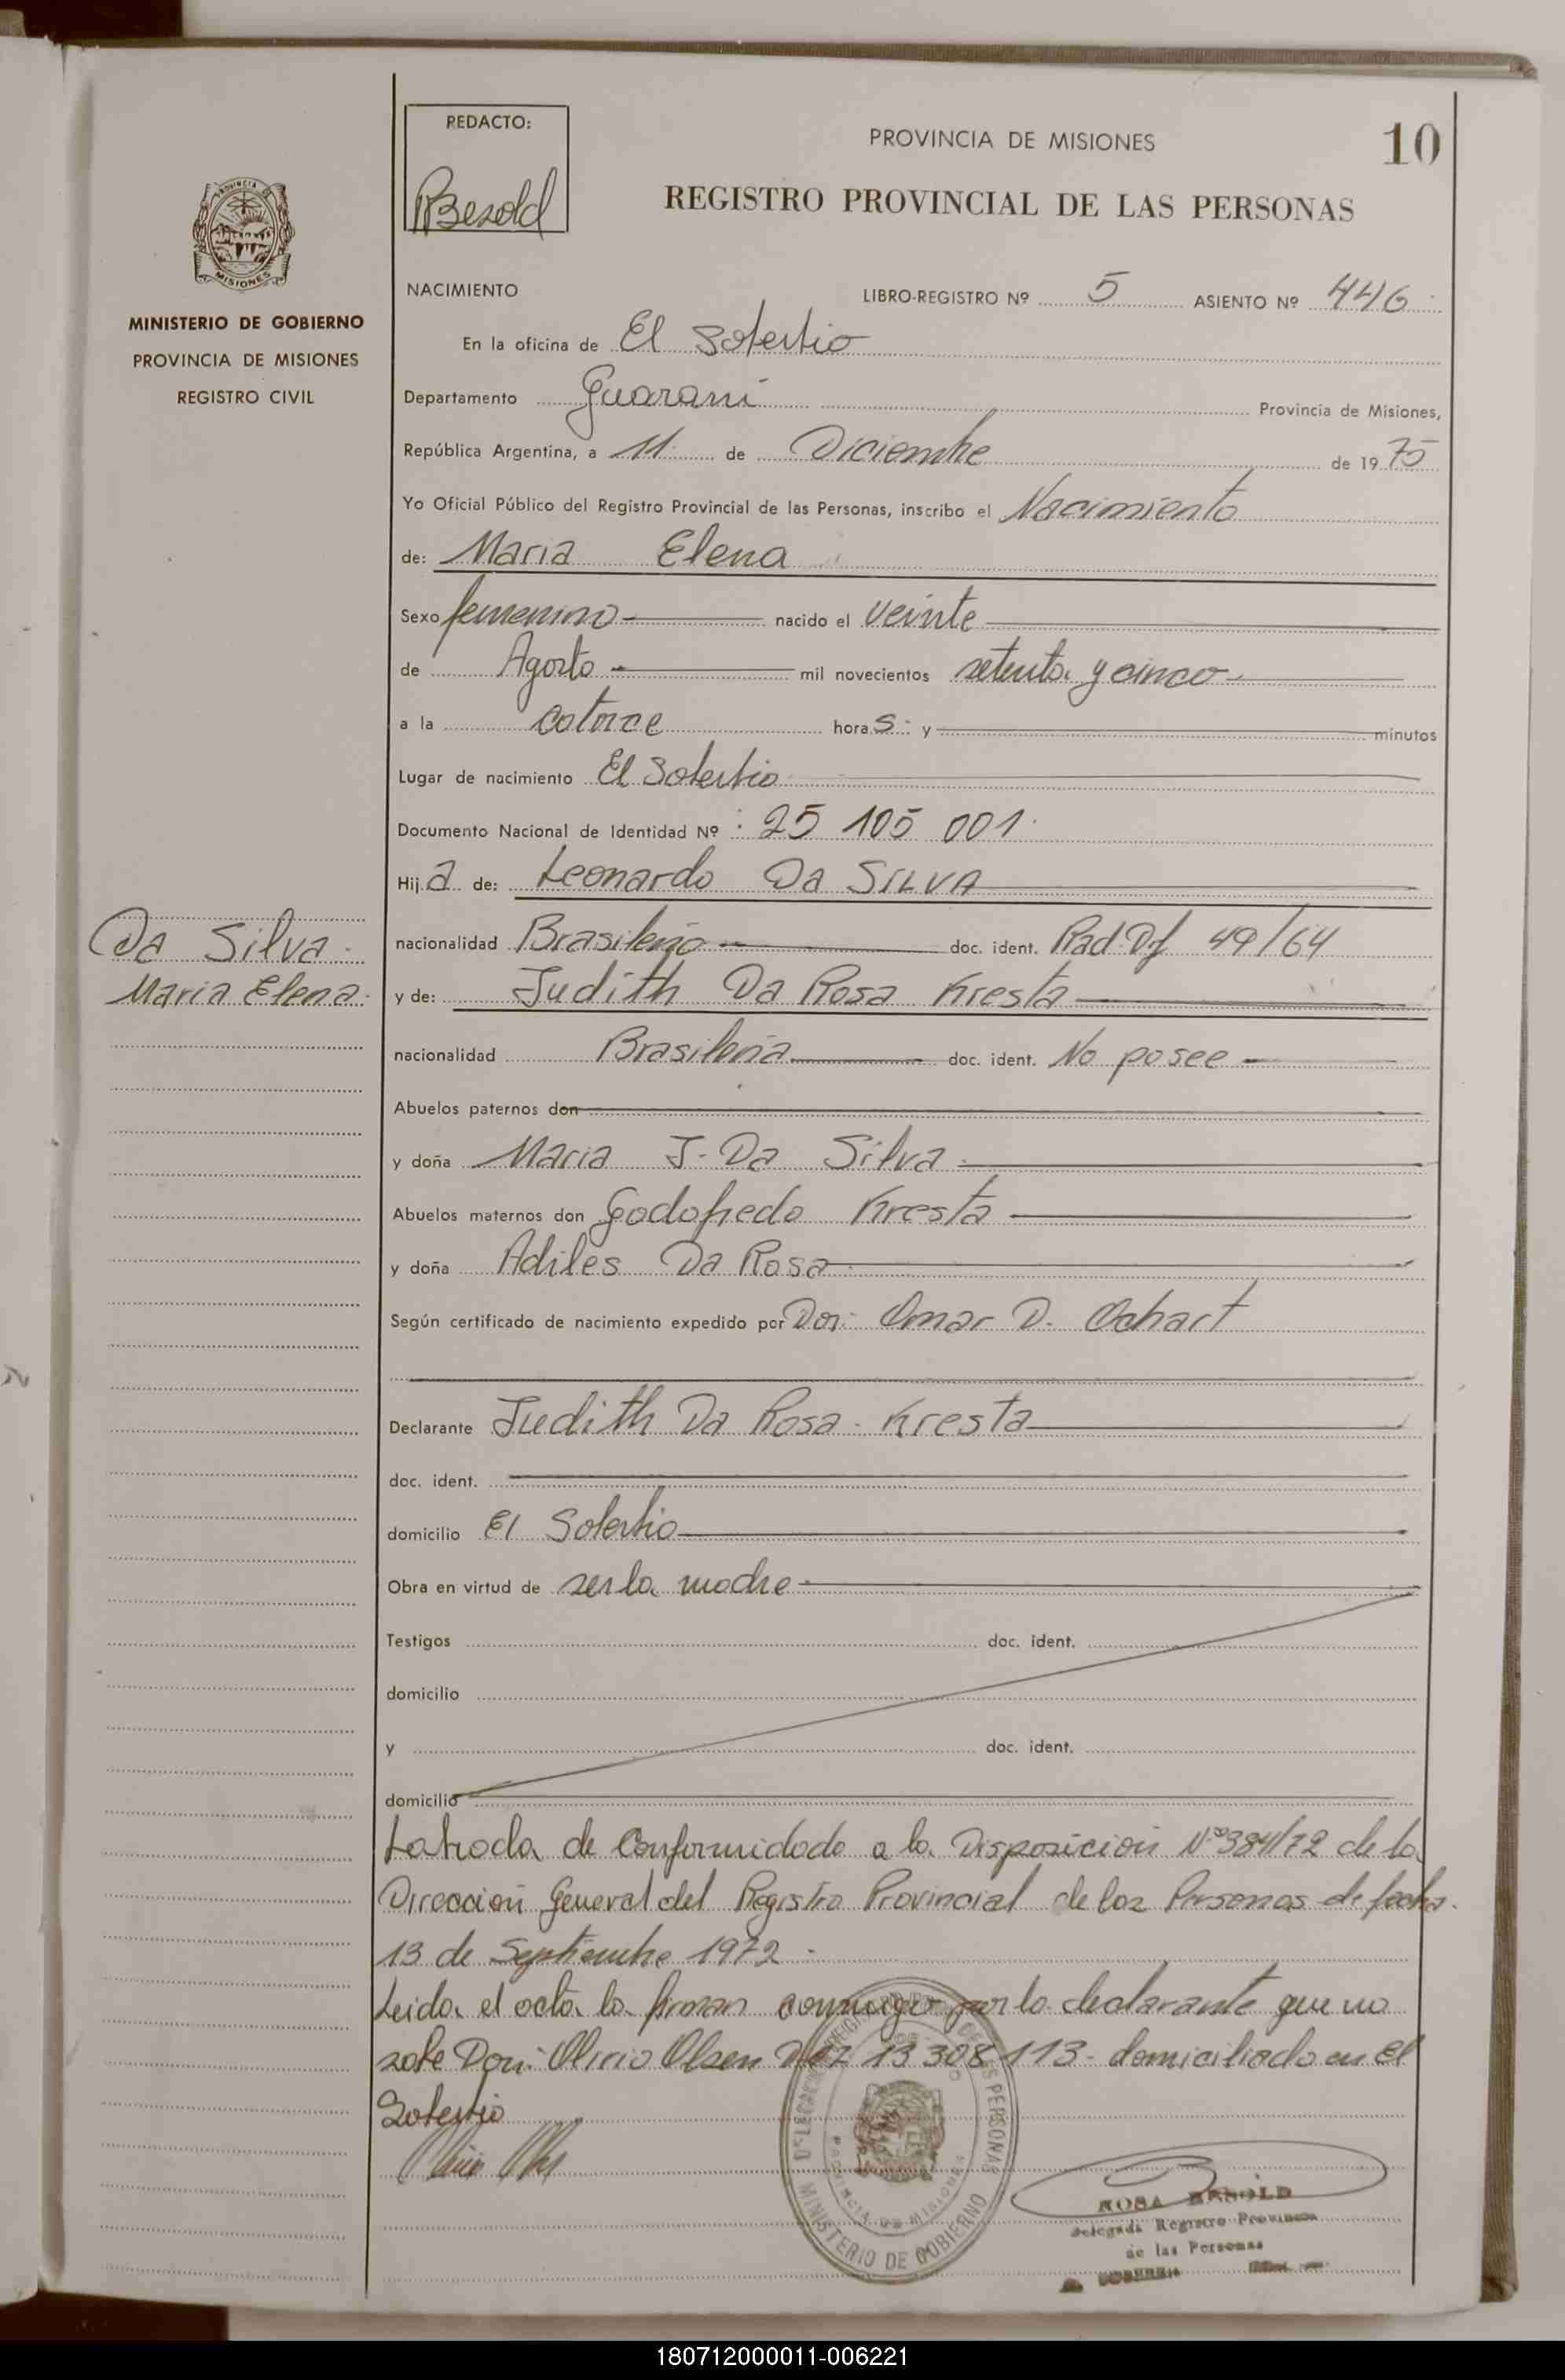 REDACTO:
Besold
PROVINCIA DE MISIONES
10
REGISTRO PROVINCIAL DE LAS PERSONAS
PROVINCIA DE MISIONES
MINISTERIO DE GOBIERNO
PROVINCIA DE MISIONES
REGISTRO CIVIL
NACIMIENTO LIBRO-REGISTRO Nº 5 ASIENTO Nº 446
En la oficina de El Soberbio
Departamento Guarani Provincia de Misiones,
República Argentina, a 11 de Diciembre de 1975
Yo Oficial Público del Registro Provincial de las Personas, inscribo el Nacimiento
de: Maria Elena
Sexo femenino nacido el veinte
de Agosto mil novecientos setenta y cinco
a la catorce horas y minutos
Lugar de nacimiento El Soberbio
Documento Nacional de Identidad Nº : 25 105 001
Hija de: Leonardo Da SILVA
Da Silva
Maria Elena
nacionalidad Brasileño doc. ident. Rad. Df 49/64
y de: Judith Da Rosa Kresta
nacionalidad Brasileña doc. ident. No posee
Abuelos paternos don
y doña Maria J. Da Silva
Abuelos maternos don Godofredo Kresta
y doña Adiles Da Rosa
Según certificado de nacimiento expedido por Don: Omar D. Ochart
Declarante Judith Da Rosa Kresta
doc. ident.
domicilio El Soberbio
Obra en virtud de ser la madre
Testigos doc. ident.
domicilio
y doc. ident.
domicilio
Labrada de Conformidada a la Disposición Nº 384/72 de la
Dirección General del Registro Provincial de las Personas de fecha
13 de Septiembre 1972
Leida el acta la firman conmigo por la declarante que no
sabe Don: Olirio Olsen 13 308 113 - domiciliado en El
Soberbio
DELEGACION REGISTRO DE LAS PERSONAS
PROVINCIA DE MISIONES
MINISTERIO DE GOBIERNO
ROSA BESOLD
Delegada Registro Provincial
de las Personas
180712000011-006221